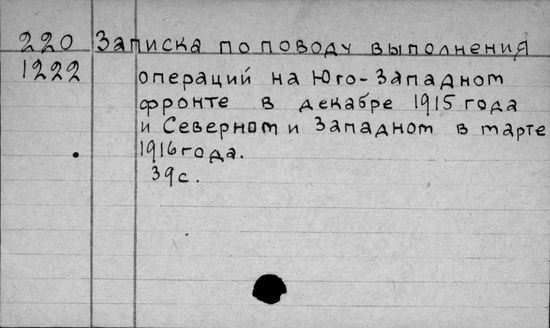 220 Записка по поводу выполнения
1222 операций на Юго-Западном
фронте в декабре 1915 года
и Северном и Западном в марте
1916 года.
39 с.